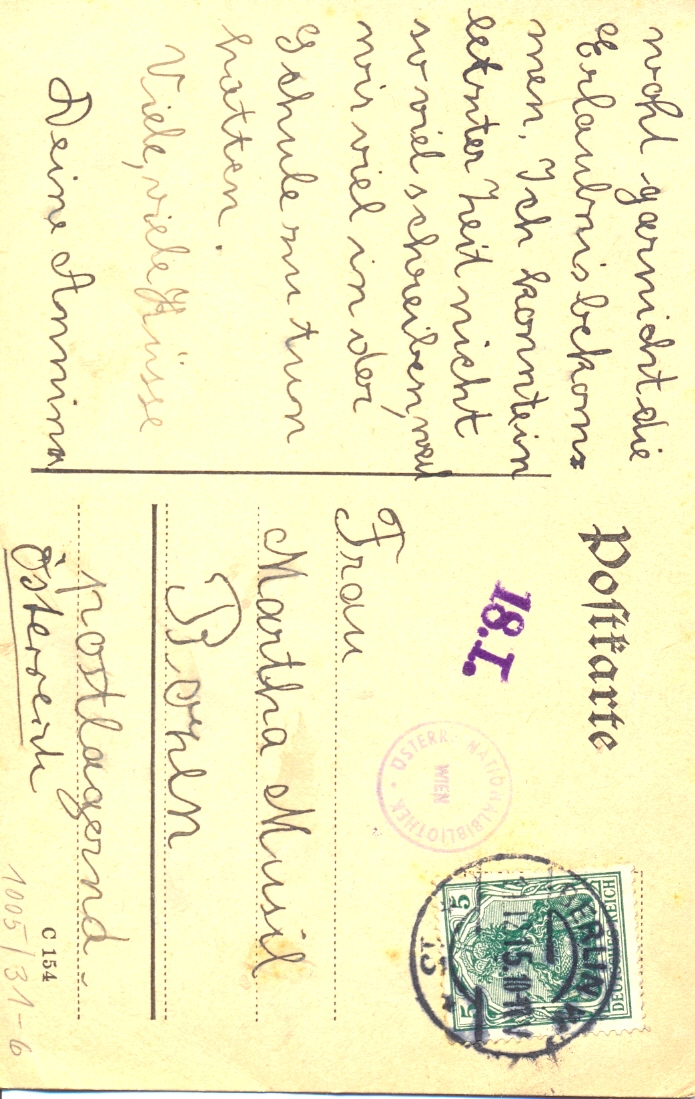 wohl garnicht die
Erlaubnis bekom=
men. Ich konnte in
letzter Zeit nicht
so viel schreiben, weil
wir viel in der
Schule zu tun
hatten.
Viele, viele Küsse
Deine Annina
Postkarte
18.I.
ÖSTERR. NATIONALBIBLIOTHEK
WIEN
BERLIN W
DEUTSCHES REICH
5 5
Frau
Martha Musil
Bozen
postlagernd.
Österreich
C 154
1005/31-6